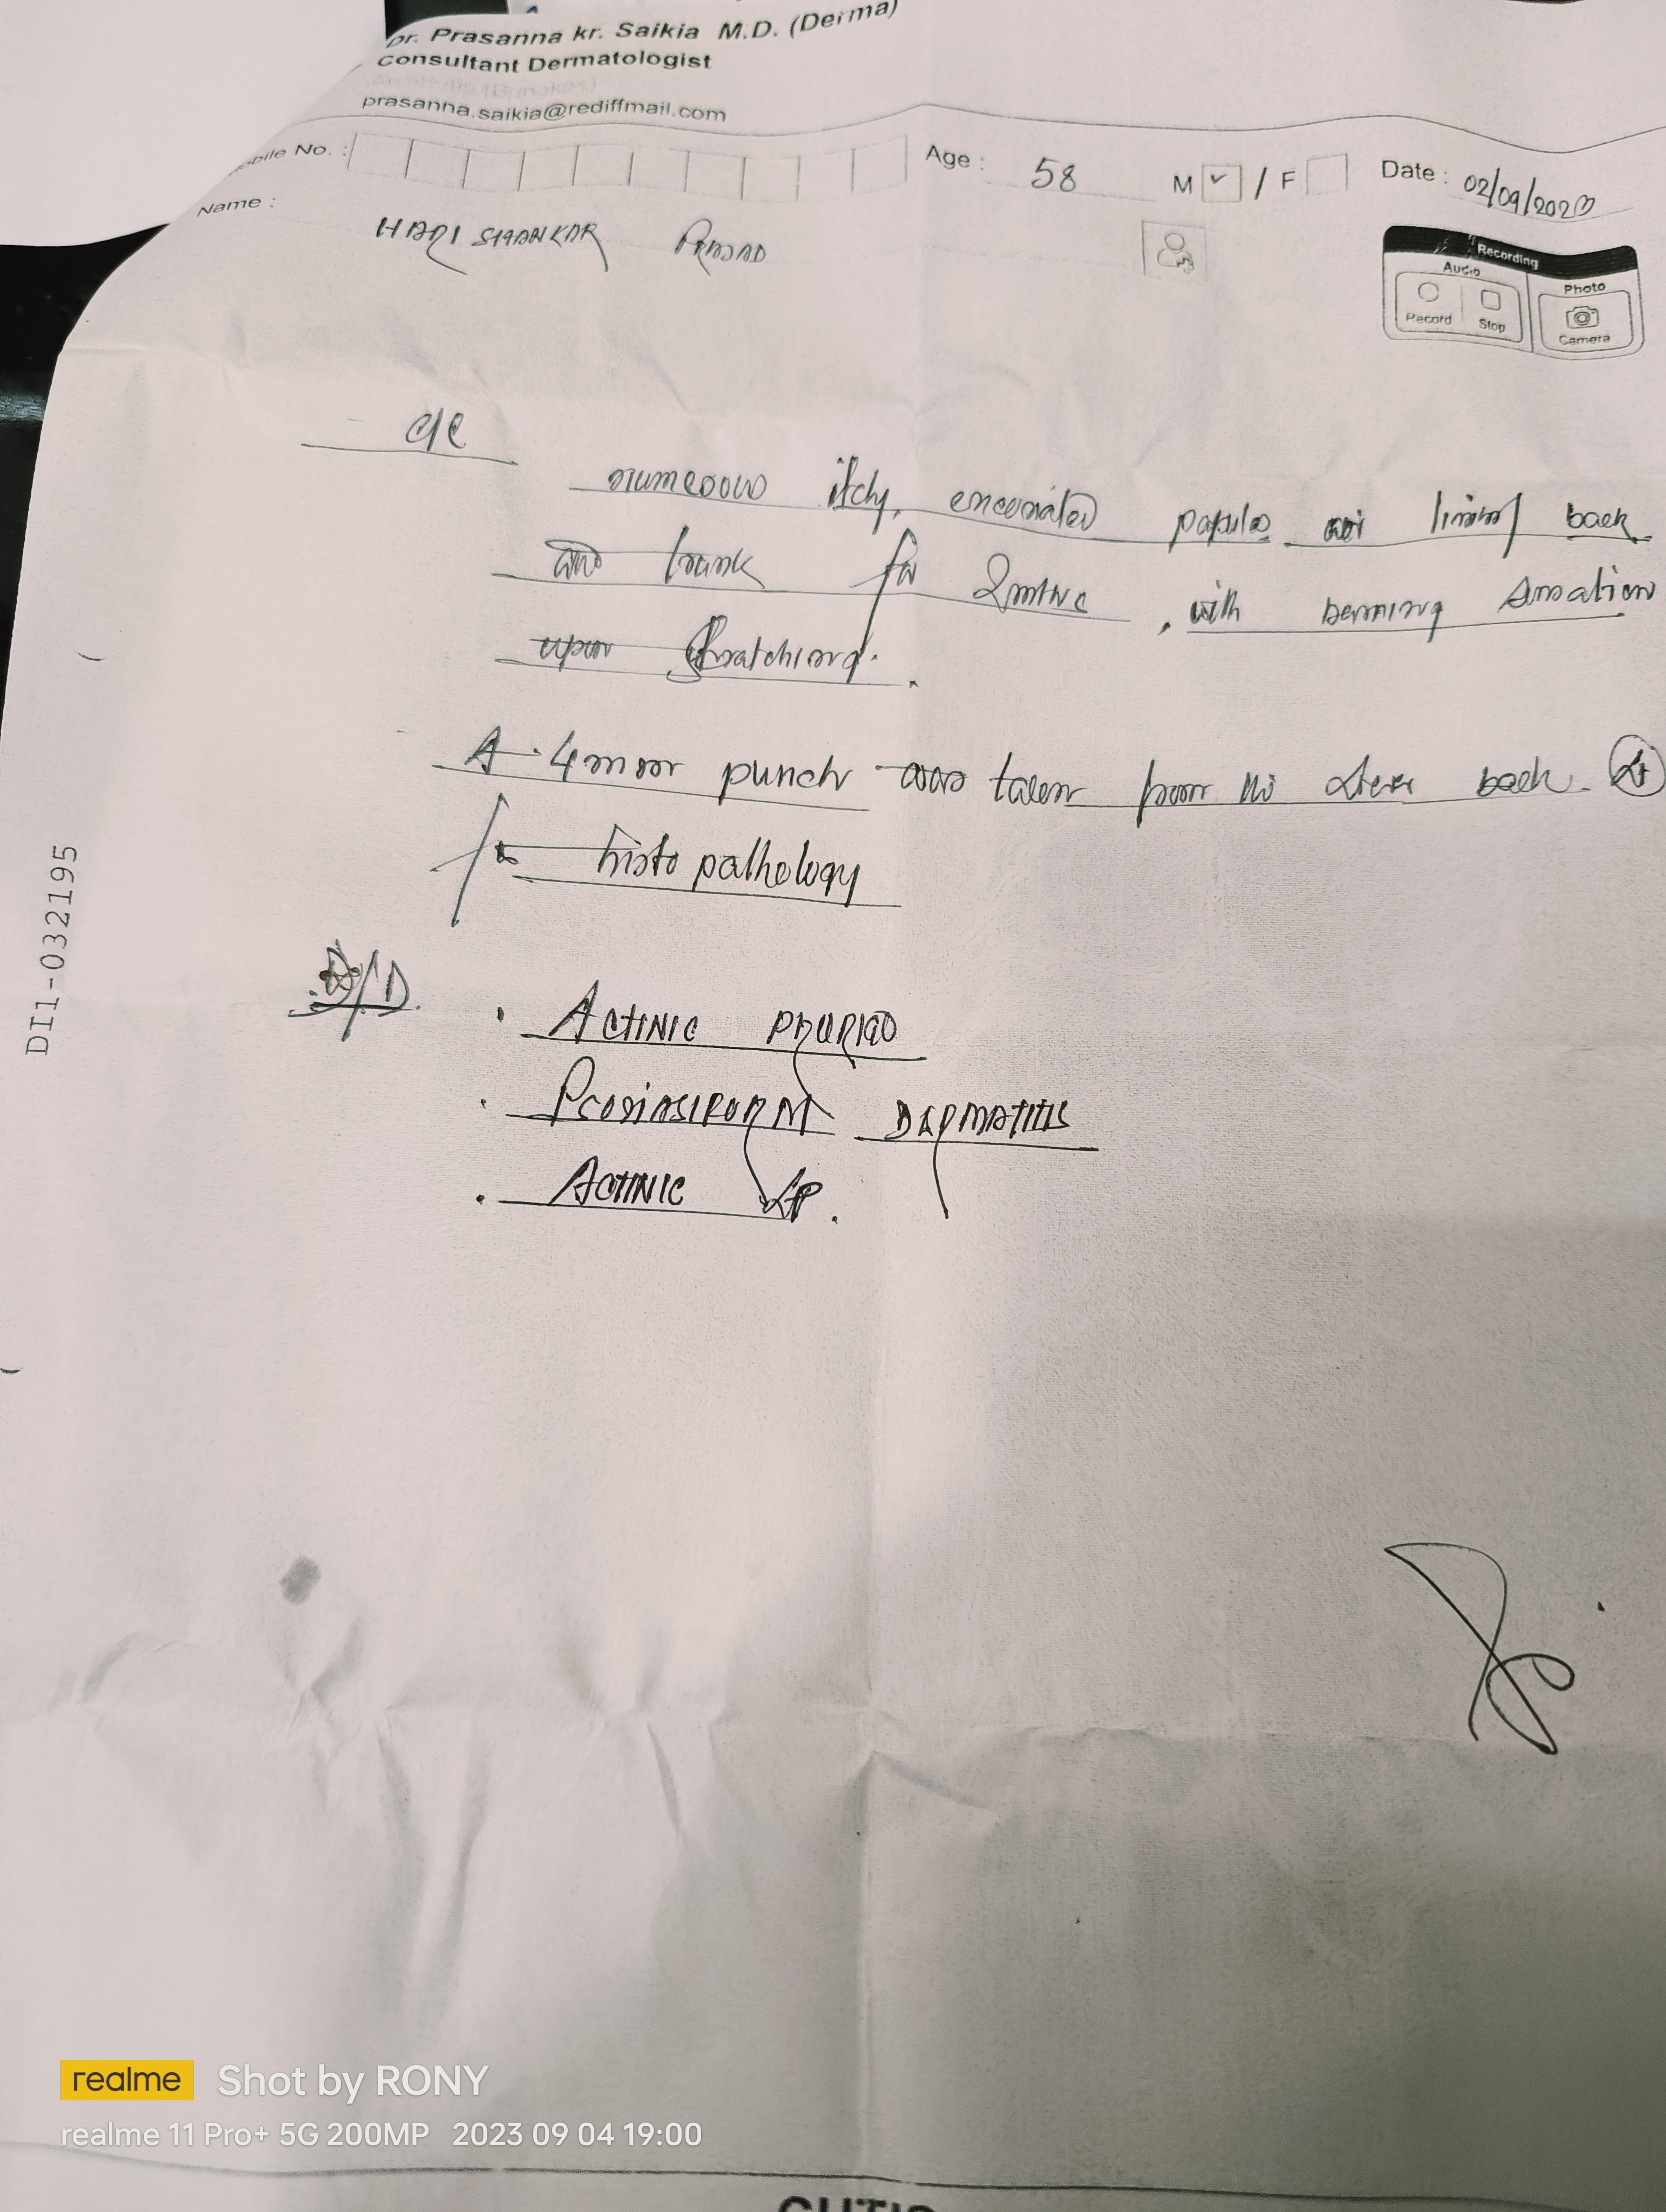 Dr. Prasanna kr. Saikia M.D. (Derma)
Consultant Dermatologist
prasanna.saikia@rediffmail.com
Mobile No. : Age : 58 M / F Date : 02/09/2023
Name : HARI SHANKAR PRASAD
Recording
Audio Photo
Record Stop Camera
C/C
numerous itchy, excoriated papules back
and trunk for 2mths, with burning sensation
upon scratching.
A 4mm punch was taken from the back. Lt
for histopathology
D/D
. ACTINIC PRURIGO
. PSORIASIFORM DERMATITIS
. ACTINIC LP.
DI1-032195
realme Shot by RONY
realme 11 Pro+ 5G 200MP 2023 09 04 19:00
CUTIS